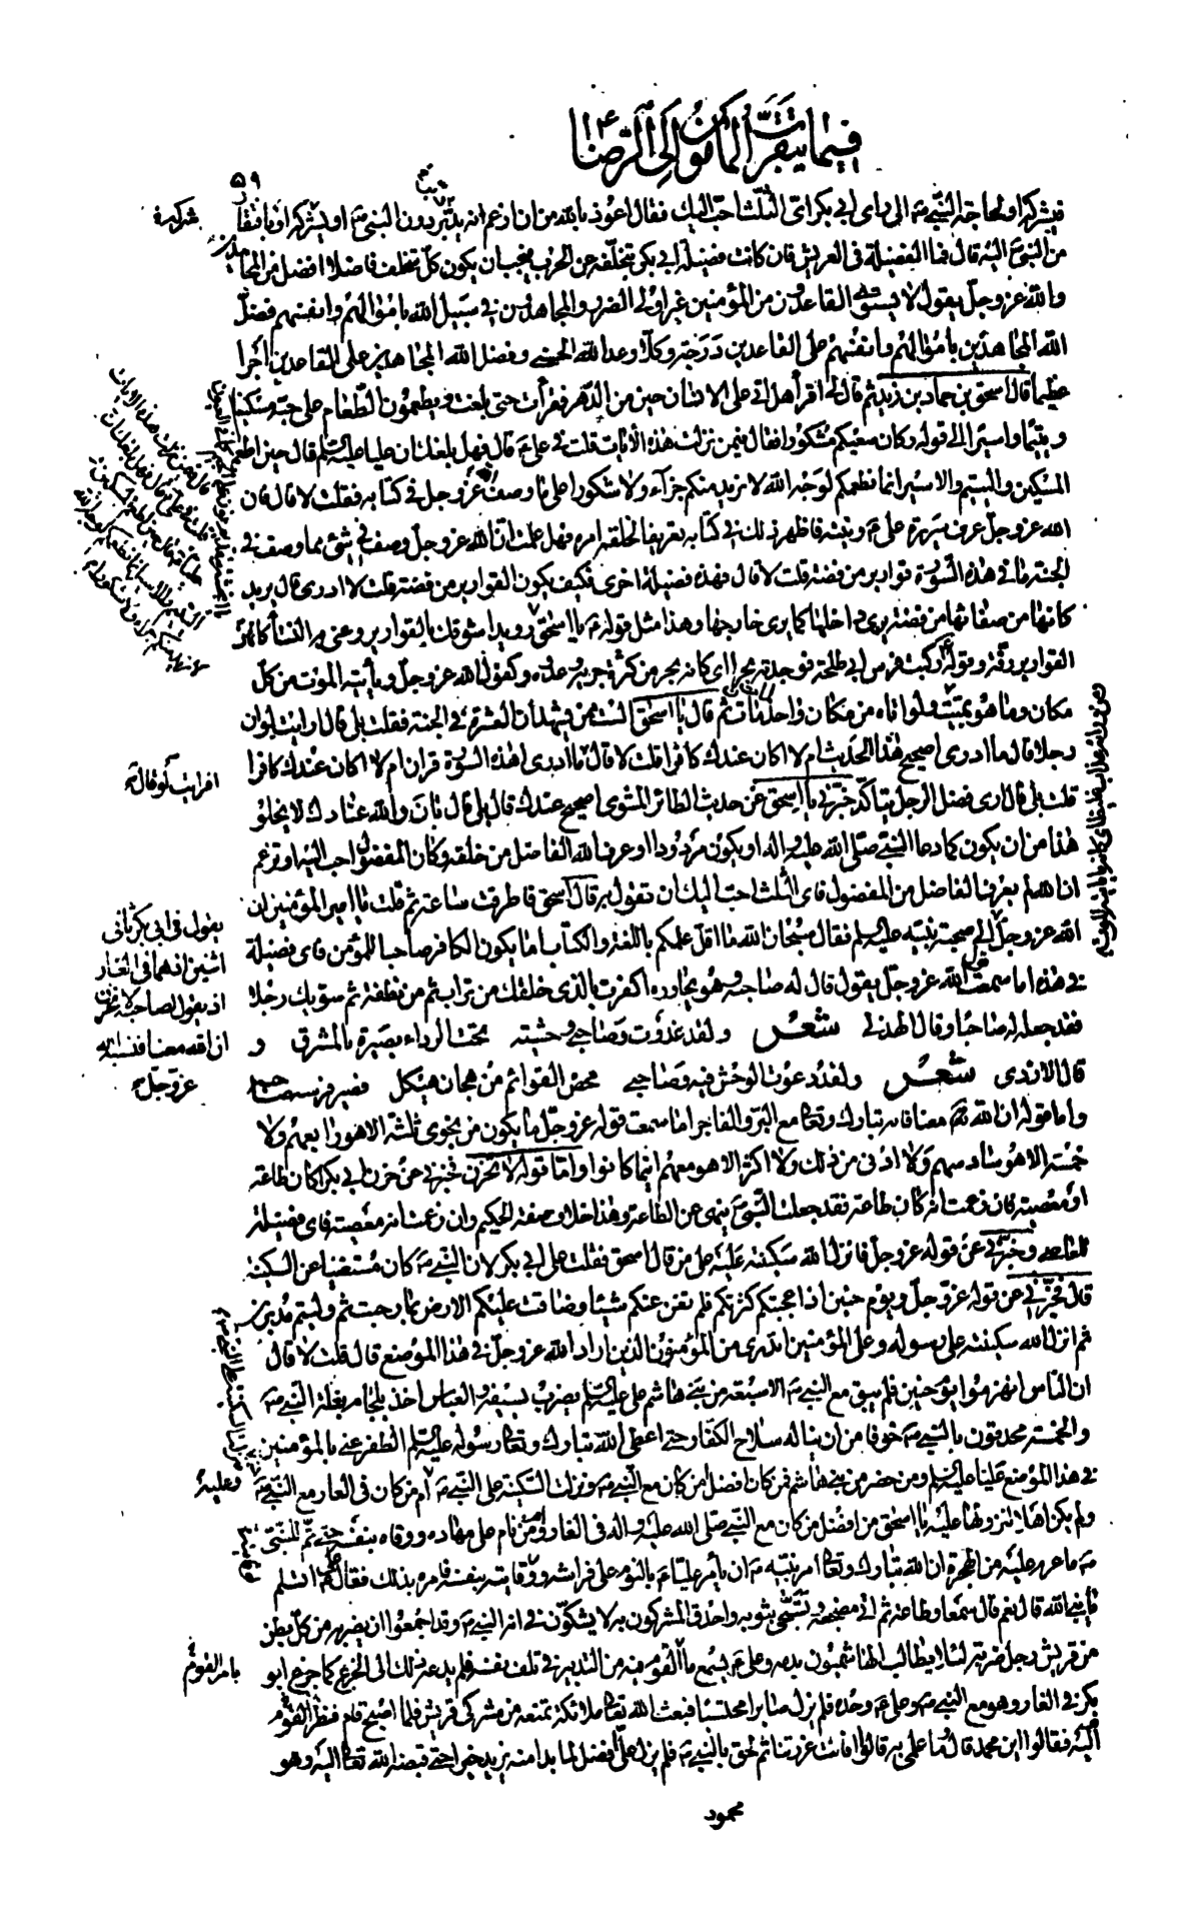 فيما يتقرب المأمون الى الرضا ع
٥٩
فيشركه او لحاجة النبي ص الى راى ابى بكر اى الثلث احب اليك فقال اعوذ بالله من ان ازعم انه يدبّر دون النبى ص او يشركه او بافتقار
من النبى ص اليه قال فما الفضيلة فى العريش فان كانت فضيلة ابى بكر بتخلفه عن الحرب فيجب ان يكون كل متخلف فاضلا افضل من المجاهدين
والله عز وجل يقول لا يستوى القاعدون من المؤمنين غير اولى الضرر والمجاهدون فى سبيل الله باموالهم وانفسهم فضل
الله المجاهدين باموالهم وانفسهم على القاعدين درجة وكلا وعد الله الحسنى وفضل الله المجاهدين على القاعدين اجرا
عظيما قال اسحق بن حماد بن زيد ثم قال لى اقرأ هل اتى على الانسان حين من الدهر فقرأت حتى بلغت ويطعمون الطعام على حبه مسكينا
ويتيما واسيرا الى قوله وكان سعيكم مشكورا فقال فيمن نزلت هذه الايات قلت فى على ع قال فهل بلغك ان عليا عليه السلم قال حين اطعم
المسكين واليتيم والاسير انما نطعمكم لوجه الله لا نريد منكم جزآء ولا شكورا على ما وصف الله عز وجل فى كتابه فقلت لا قال فان
الله عز وجل عرف سريرة على ع ونيته فاظهر ذلك فى كتابه تعريفا لخلقه امره فهل علمت ان الله عز وجل وصف فى شئ مما وصف فى
الجنة ما فى هذه السورة قوارير من فضة قلت لا قال فهذه فضيلة اخرى فكيف يكون القوارير من فضة قلت لا ادرى قال يريد
كانها من صفائها من فضة يرى داخلها كما يرى خارجها وهذا مثل قوله ص يا اسحق رويدا شوقك بالقوارير وعنى به النسآء كانهن
القوارير رقة وقوله ص ركبت فرس ابى طلحة فوجدته بحرا اى كانه بحر من كثرة جريه وعدوه وكقول الله عز وجل ويأتيه الموت من كل
مكان وما هو بميت ولو اتاه من مكان واحد لمات ثم قال يا اسحق الست ممن يشهد ان العشرة فى الجنة فقلت بلى قال ارايت لو ان
رجلا قال ما ادرى اصحيح هذا الحديث ام لا اكان عندك كافرا قلت لا قال لو قال ما ادرى هذه السورة قران ام لا اكان عندك كافرا
قلت بلى قال ارى فضل الرجل يتاكد خبرنى يا اسحق عن حديث الطائر المشوى اصحيح عندك قال بلى قال بان والله عنادك لا يخلو
هذا من ان يكون كما دعا النبى صلى الله عليه واله او يكون مردودا او عرف الله الفاضل من خلقه وكان المفضول احب اليه او تزعم
ان الله لم يعرف الفاضل من المفضول فاى الثلث احب اليك ان تقول به قال اسحق فاطرقت ساعة ثم قلت يا امير المؤمنين ان
الله عز وجل صحبة نبيه عليه السلم فقال سبحان الله ما اقل علمكم باللغة والكتاب اما يكون الكافر صاحبا للمؤمن فاى فضيلة
فى هذه اما سمعت قول الله عز وجل يقول قال له صاحبه وهو يحاوره اكفرت بالذى خلقك من تراب ثم من نطفة ثم سويك رجلا
فقد جعله له صاحبا وقال الهذلى شعر ولقد غدوت وصاحبى وحشية تحت الرداء بصيرة بالمشرق و
قال الازدى شعر ولقد دعوت الوحش فيه وصاحبى محض القوائم من هجان هيكل فصير فرسه صاحبه
واما قوله ان الله معنا فانه تبارك وتعالى مع البر والفاجر اما سمعت قوله عز وجل ما يكون من نجوى ثلثة الا هو رابعهم ولا
خمسة الا هو سادسهم ولا ادنى من ذلك ولا اكثر الا هو معهم اينما كانوا واما قوله لا تحزن فخبرنى عن حزن ابى بكر اكان طاعة
او معصية فان زعمت انه كان طاعة فقد جعلت النبى ص ينهى عن الطاعة وهذا خلاف صفة الحكيم وان زعمت انه معصية فاى فضيلة
للعاصى وخبرنى عن قوله عز وجل فانزل الله سكينته عليه على من قال اسحق فقلت على ابى بكر لان النبى ص كان مستغنيا عن السكينة
قال فخبرنى عن قوله عز وجل ويوم حنين اذ اعجبتكم كثرتكم فلم تغن عنكم شيئا وضاقت عليكم الارض بما رحبت ثم وليتم مدبرين
ثم انزل الله سكينته على رسوله وعلى المؤمنين اتدرى من المؤمنون الذين اراد الله عز وجل فى هذا الموضع قال قلت لا قال
ان الناس انهزموا يوم حنين فلم يبق مع النبى ص الا سبعة من بنى هاشم على عليه السلم يضرب بسيفه والعباس اخذ بلجام بغلة النبى ص
والخمسة محدقون بالنبى ص خوفا من ان يناله سلاح الكفار حتى اعطى الله تبارك وتعالى رسوله عليه السلم الظفر عنى بالمؤمنين
فى هذا الموضع عليا عليه السلم ومن حضر من بنى هاشم فمن كان افضل امن كان مع النبى ص ونزلت السكينة على النبى ص ام من كان فى الغار مع النبى ص
ولم يكن اهلا لنزولها عليه يا اسحق من افضل من كان مع النبى صلى الله عليه واله فى الغار او من نام على مهاده ووقاه بنفسه حتى تم للنبى
ص ما عزم عليه من الهجرة ان الله تبارك وتعالى امر نبيه ص ان يأمر عليا ع بالنوم على فراشه ووقايته بنفسه فامره بذلك فقال على ع اتسلم
يا نبى الله قال نعم قال سمعا وطاعة ثم اتى مضجعه وتسجى بثوبه واحدق المشركون به لا يشكون فى انه النبى ص وقد اجمعوا ان يضربه من كل بطن
من قريش رجل ضربة لئلا يطالب الهاشميون بدمه وعلى ع يسمع ما القوم فيه من التدبير فى تلف نفسه فلم يدعه ذلك الى الجزع كما جزع ابو
بكر فى الغار وهو مع النبى ص وعلى ع وحده فلم يزل صابرا محتسبا فبعث الله تعالى ملائكة تمنعه من مشركى قريش فلما اصبح قام فنظر القوم
اليه فقالوا اين محمد قال وما علمى به قالوا فانت غررتنا ثم لحق بالنبى ص فلم يزل على افضل لما بدا منه يزيد خيرا حتى قبضه الله تعالى اليه وهو
محمود
شركة
افرايت لو قال
يقول فى ابى بكر ثانى
اثنين اذ هما فى الغار
اذ يقول لصاحبه لا تحزن
ان الله معنا فنسبه الله
عز وجل
وعليه
بامر القوم